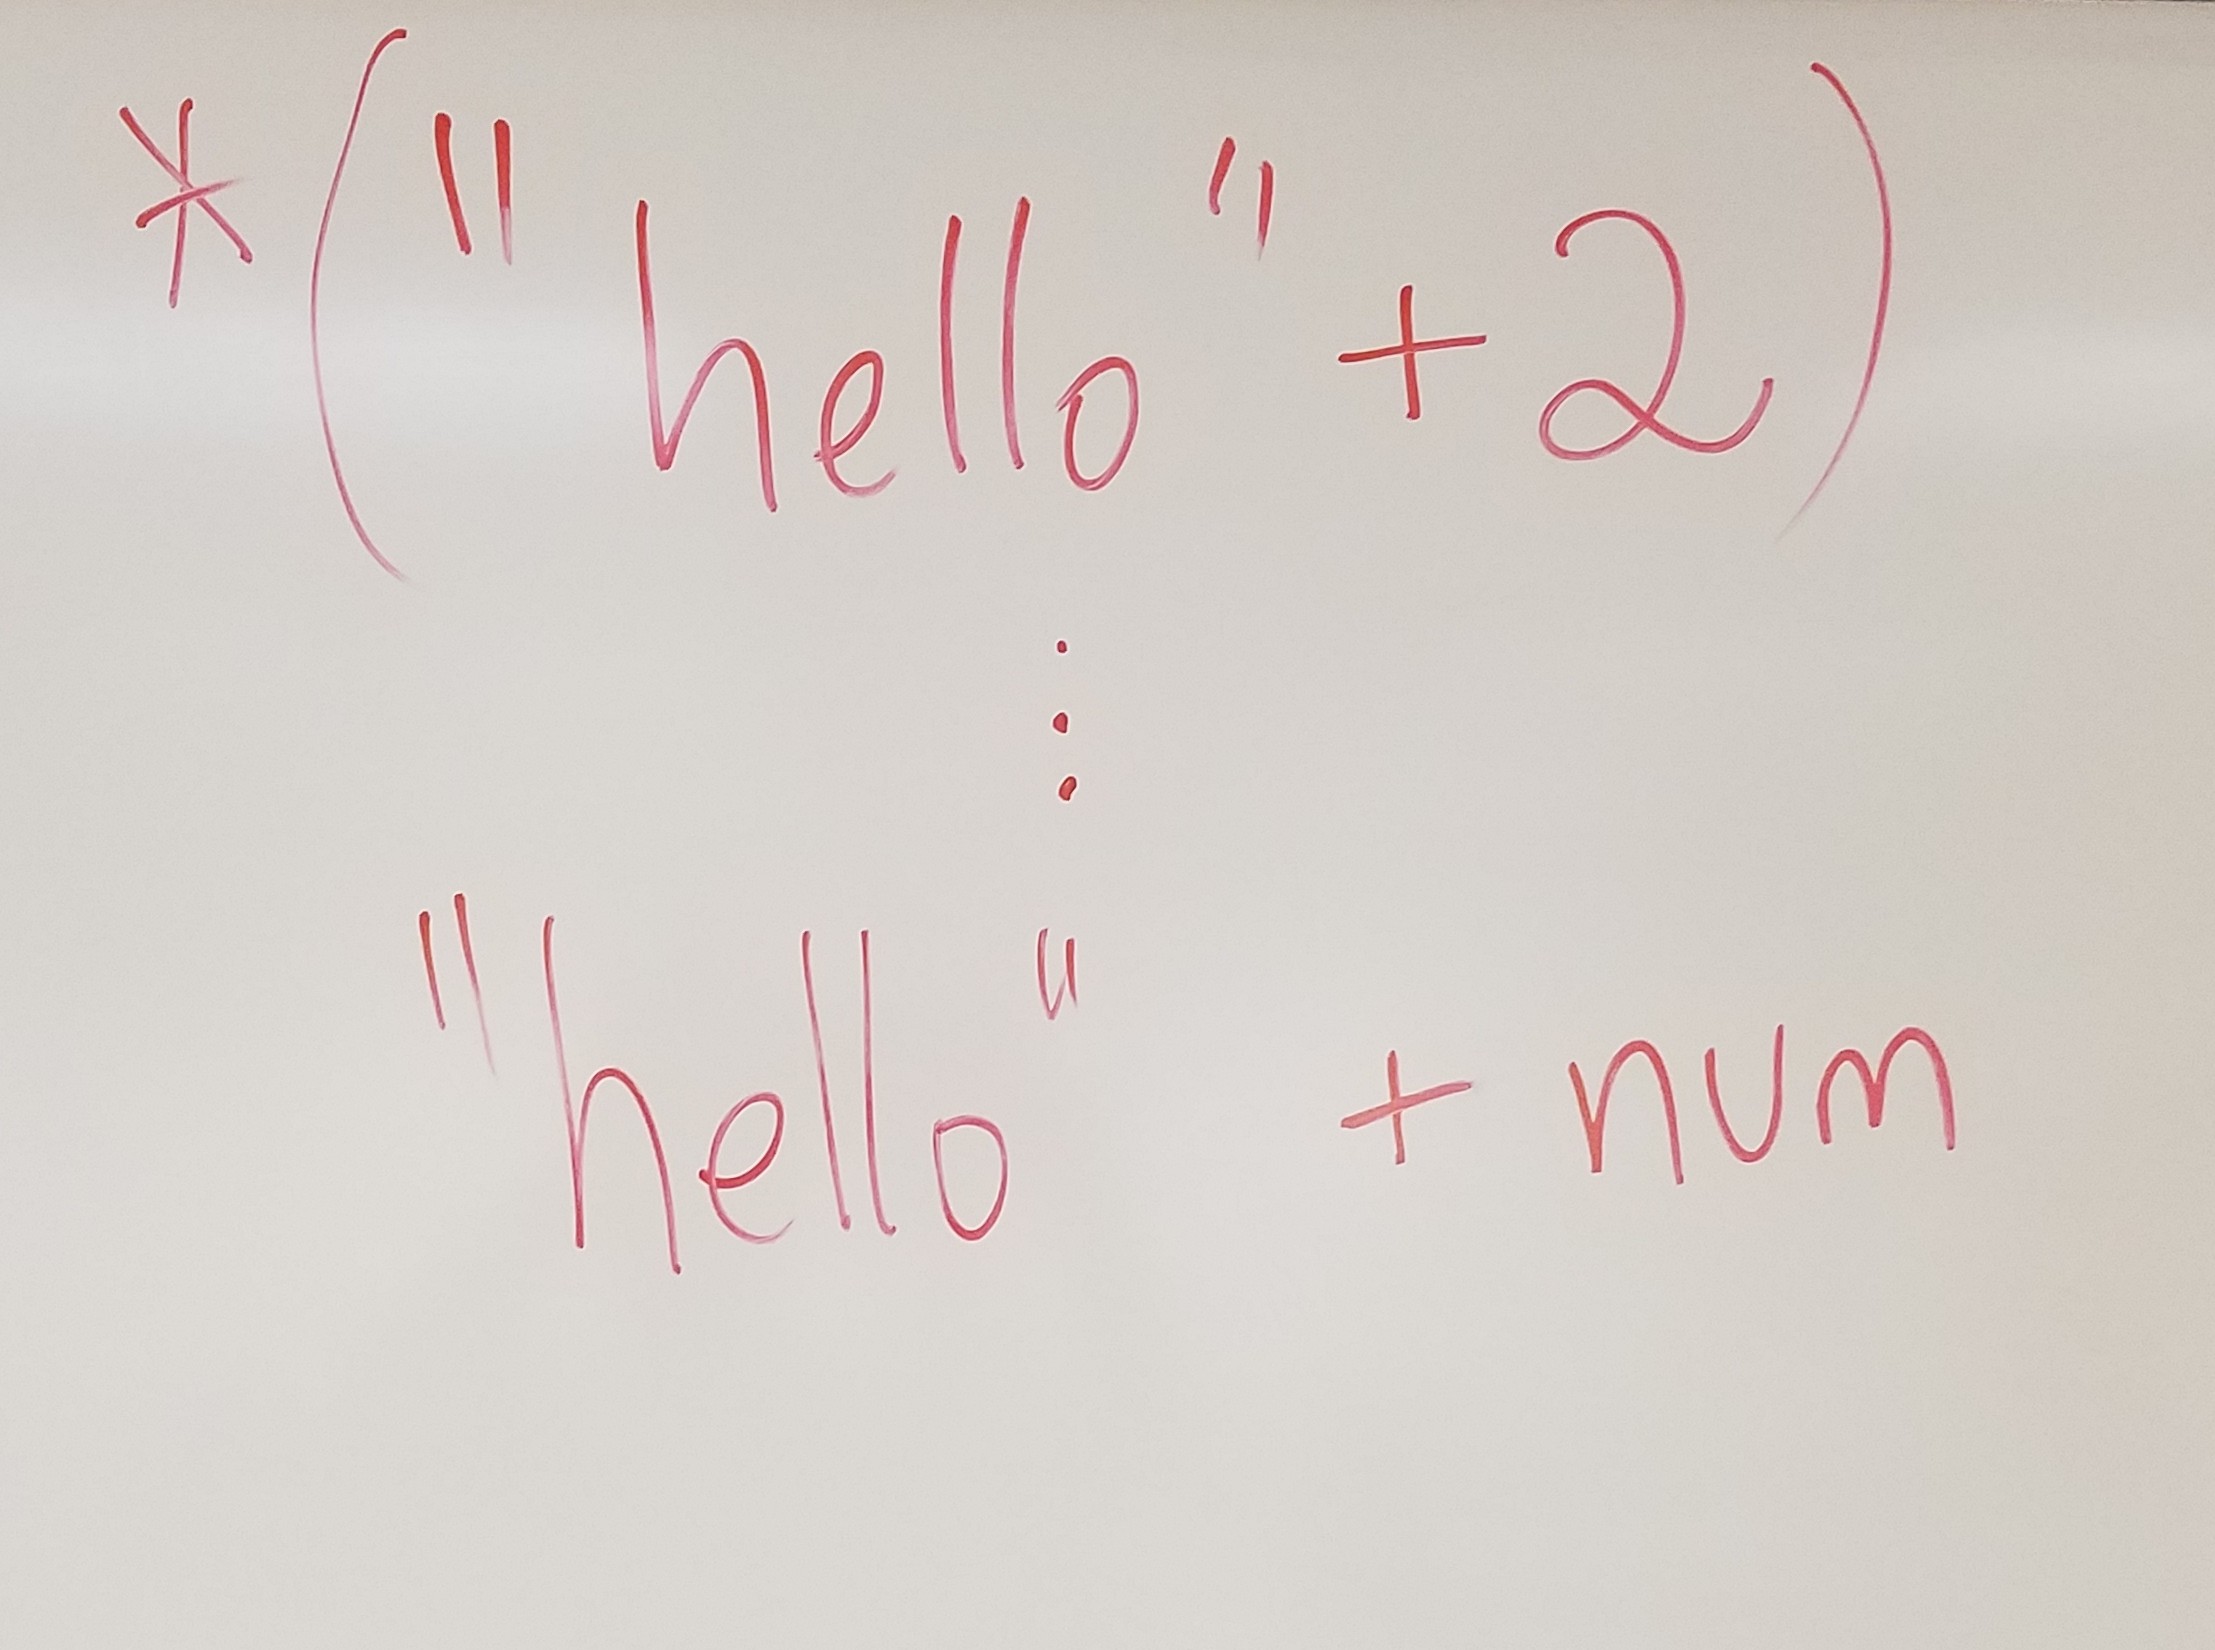 *("hello"+2)
⋮
"hello" + num